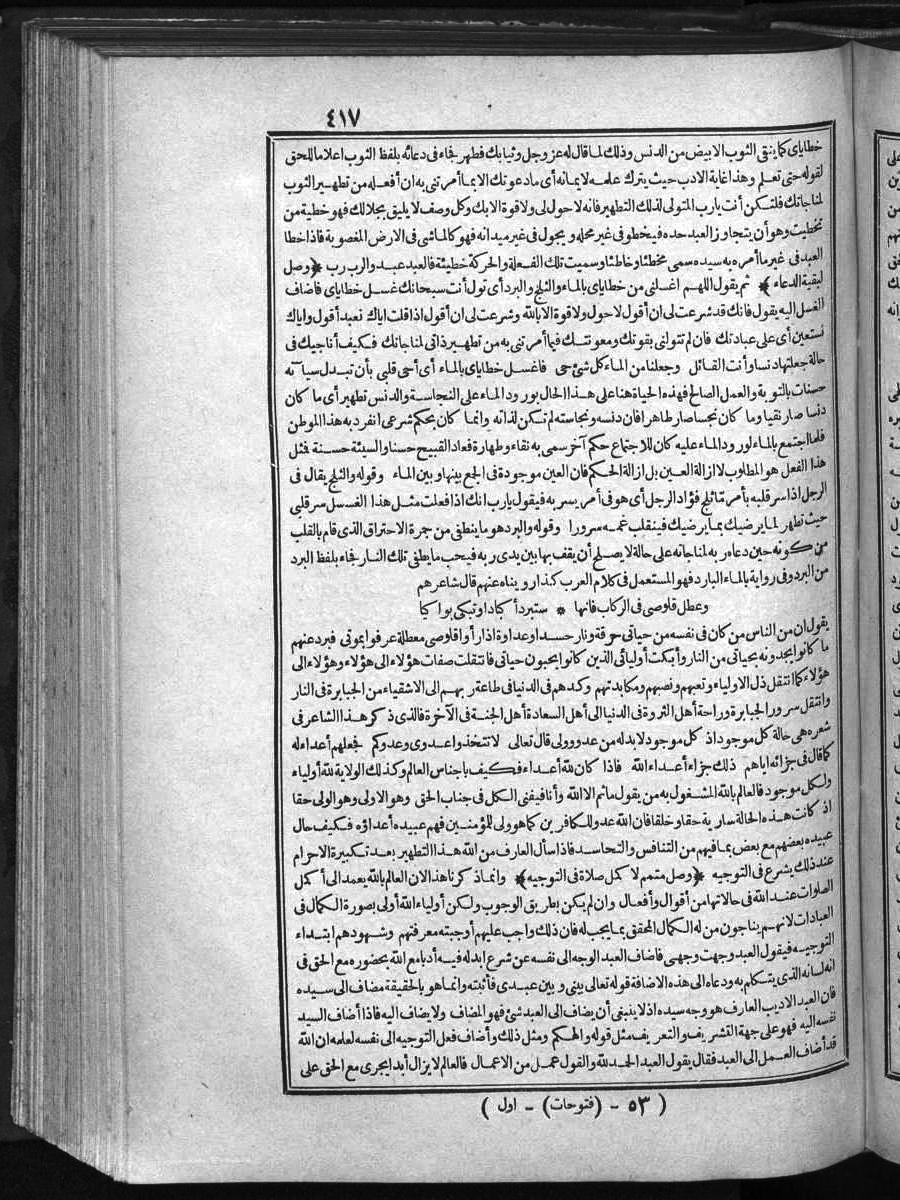 ٤١٧
خطاياى كما ينقى الثوب الابيض من الدنس وذلك لما قال له عز وجل وثيابك فطهر فجاء فى دعائه بلفظ الثوب اعلاما للحق
لقوله حتى تعلم وهذا غاية الادب حيث يترك علمه لايمانه أى ما دعوتك الا بما أمرتنى به ان أفعله من تطهير الثوب
لمناجاتك فلتكن أنت يارب المتولى لذلك التطهير فانه لا حول لى ولا قوة الا بك وكل وصف لا يليق بجلالك فهو خطية من
تخطيت وهو أن يتجاوز العبد حده فيخطو فى غير محله ويجول فى غير ميدانه فهو كالماشى فى الارض المغصوبة فاذا خطا
العبد فى غير ما أمره به سيده سمى مخطئا وخاطئا وسميت تلك الفعلة والحركة خطيئة فالعبد عبد والرب رب ﴿وصل
لبقية الدعاء﴾ ثم يقول اللهم اغسلنى من خطاياى بالماء والثلج والبرد أى تول أنت سبحانك غسل خطاياى فاضاف
الغسل اليه يقول فانك قد شرعت لى ان أقول لا حول ولا قوة الا بالله وشرعت لى ان أقول اذا قلت اياك نعبد أقول واياك
نستعين أى على عبادتك فان لم تتولنى بقوتك ومعونتك فيما أمرتنى به من تطهير ذاتى لمناجاتك فكيف أناجيك فى
حالة جعلتها دنسا وأنت القائل وجعلنا من الماء كل شئ حى فاغسل خطاياى بالماء أى أحى قلبى بأن تبدل سيآته
حسنات بالتوبة والعمل الصالح فهذه الحياة هنا على هذا الحال بورود الماء على النجاسة والدنس تطهير أى ما كان
دنسا صار نقيا وما كان نجسا صار طاهرا فان دنسه ونجاسته لم تكن لذاته وانما كان بحكم شرعى انفرد به هذا الموطن
فلما اجتمع بالماء لورود الماء عليه كان للاجتماع حكم آخر سمى به نقاء وطهارة فعاد القبيح حسنا والسيئة حسنة فثل
هذا الفعل هو المطلوب لا ازالة العين بل ازالة الحكم فان العين موجودة فى الجمع بينها وبين الماء وقوله والثلج يقال فى
الرجل اذا سر قلبه بأمر ما ثلج فؤاد الرجل أى هو فى أمر يسر به فيقول يارب انك اذا فعلت مثل هذا الغسل سر قلبى
حيث تطهر لما يرضيك بما يرضيك فينقلب غمه سرورا وقوله والبرد هو ما ينطفى من جرة الاحتراق الذى قام بالقلب
من كونه حين دعاه ربه لمناجاته على حالة لا يصلح أن يقف بها بين يدى ربه فيحب ما يطفى تلك النار فجاء بلفظ البرد
من البرد وفى رواية بالماء البارد فهو المستعمل فى كلام العرب كذا رويناه عنهم قال شاعرهم
وعطل قلوصى فى الركاب فانها * ستبرد أكبادا وتبكى بواكيا
يقول ان من الناس من كان فى نفسه من حياتى حرقة ونار حسدا وعداوة اذا رأوا قلوصى معطلة عرفوا بموتى فبرد عنهم
ما كانوا يجدونه بحياتى من النار وأبكت أوليائى الذين كانوا يحبون حياتى فانتقلت صفات هؤلاء الى هؤلاء وهؤلاء الى
هؤلاء كما انتقل ذل الاولياء وتعبهم ونصبهم ومكابدتهم وكدهم فى الدنيا فى طاعة ربهم الى الاشقياء من الجبابرة فى النار
وانتقل سرور الجبابرة وراحة أهل الثروة فى الدنيا الى أهل السعادة أهل الجنة فى الآخرة فالذى ذكر هذا الشاعر فى
شعره هى حالة كل موجود اذ كل موجود لابد له من عدو وولى قال تعالى لا تتخذوا عدوى وعدوكم فجعلهم أعداء له
كما قال فى جزائه اياهم ذلك جزاء أعداء الله فاذا كان لله أعداء فكيف باجناس العالم وكذلك الولاية لله أولياء
ولكل موجود فالعالم بالله المشغول به من يقول ما ثم الا الله وأنا فيفنى الكل فى جناب الحق وهو الاولى وهو الولى حقا
اذ كانت هذه الحالة سارية حقا وخلقا فان الله عدو للكافرين كما هو ولى للمؤمنين فهم عبيده أعداؤه فكيف حال
عبيده بعضهم مع بعض بما فيهم من التنافس والتحاسد فاذا سأل العارف من الله هذا التطهير بعد تكبيرة الاحرام
عند ذلك يشرع فى التوجيه ﴿وصل متمم لا كمل صلاة فى التوجيه﴾ وانما ذكرنا هذا لان العالم بالله يعمد الى أكمل
الصلوات عند الله فى حالاتها من أقوال وأفعال وان لم يكن بطريق الوجوب ولكن أولياء الله أولى بصورة الكمال فى
العبادات لانهم يناجون من له الكمال المحقق بما يجب له فان ذلك واجب عليهم أوجبته معرفتهم وشهودهم ابتداء
التوجيه فيقول العبد وجهت وجهى فاضاف العبد الوجه الى نفسه عن شرع ابدله فيه أدبا مع الله بحضوره مع الحق فى
انه لسانه الذى يتكلم به ودعاه الى هذه الاضافة قوله تعالى بينى وبين عبدى فأثبته وانما هو بالحقيقة مضاف الى سيده
فان العبد الاديب العارف هو وجه سيده اذ لا ينبغى أن يضاف الى العبد شئ فهو المضاف ولا يضاف اليه فاذا أضاف السيد
نفسه اليه فهو على جهة التشريف والتعريف مثل قوله والهكم ومثل ذلك وأضاف فعل التوجيه الى نفسه لعلمه ان الله
قد أضاف العمل الى العبد فقال يقول العبد الحمد لله والقول عمل من الاعمال فالعالم لا يزال أبدا يجرى مع الحق على
( ٥٣ - (فتوحات) - اول )